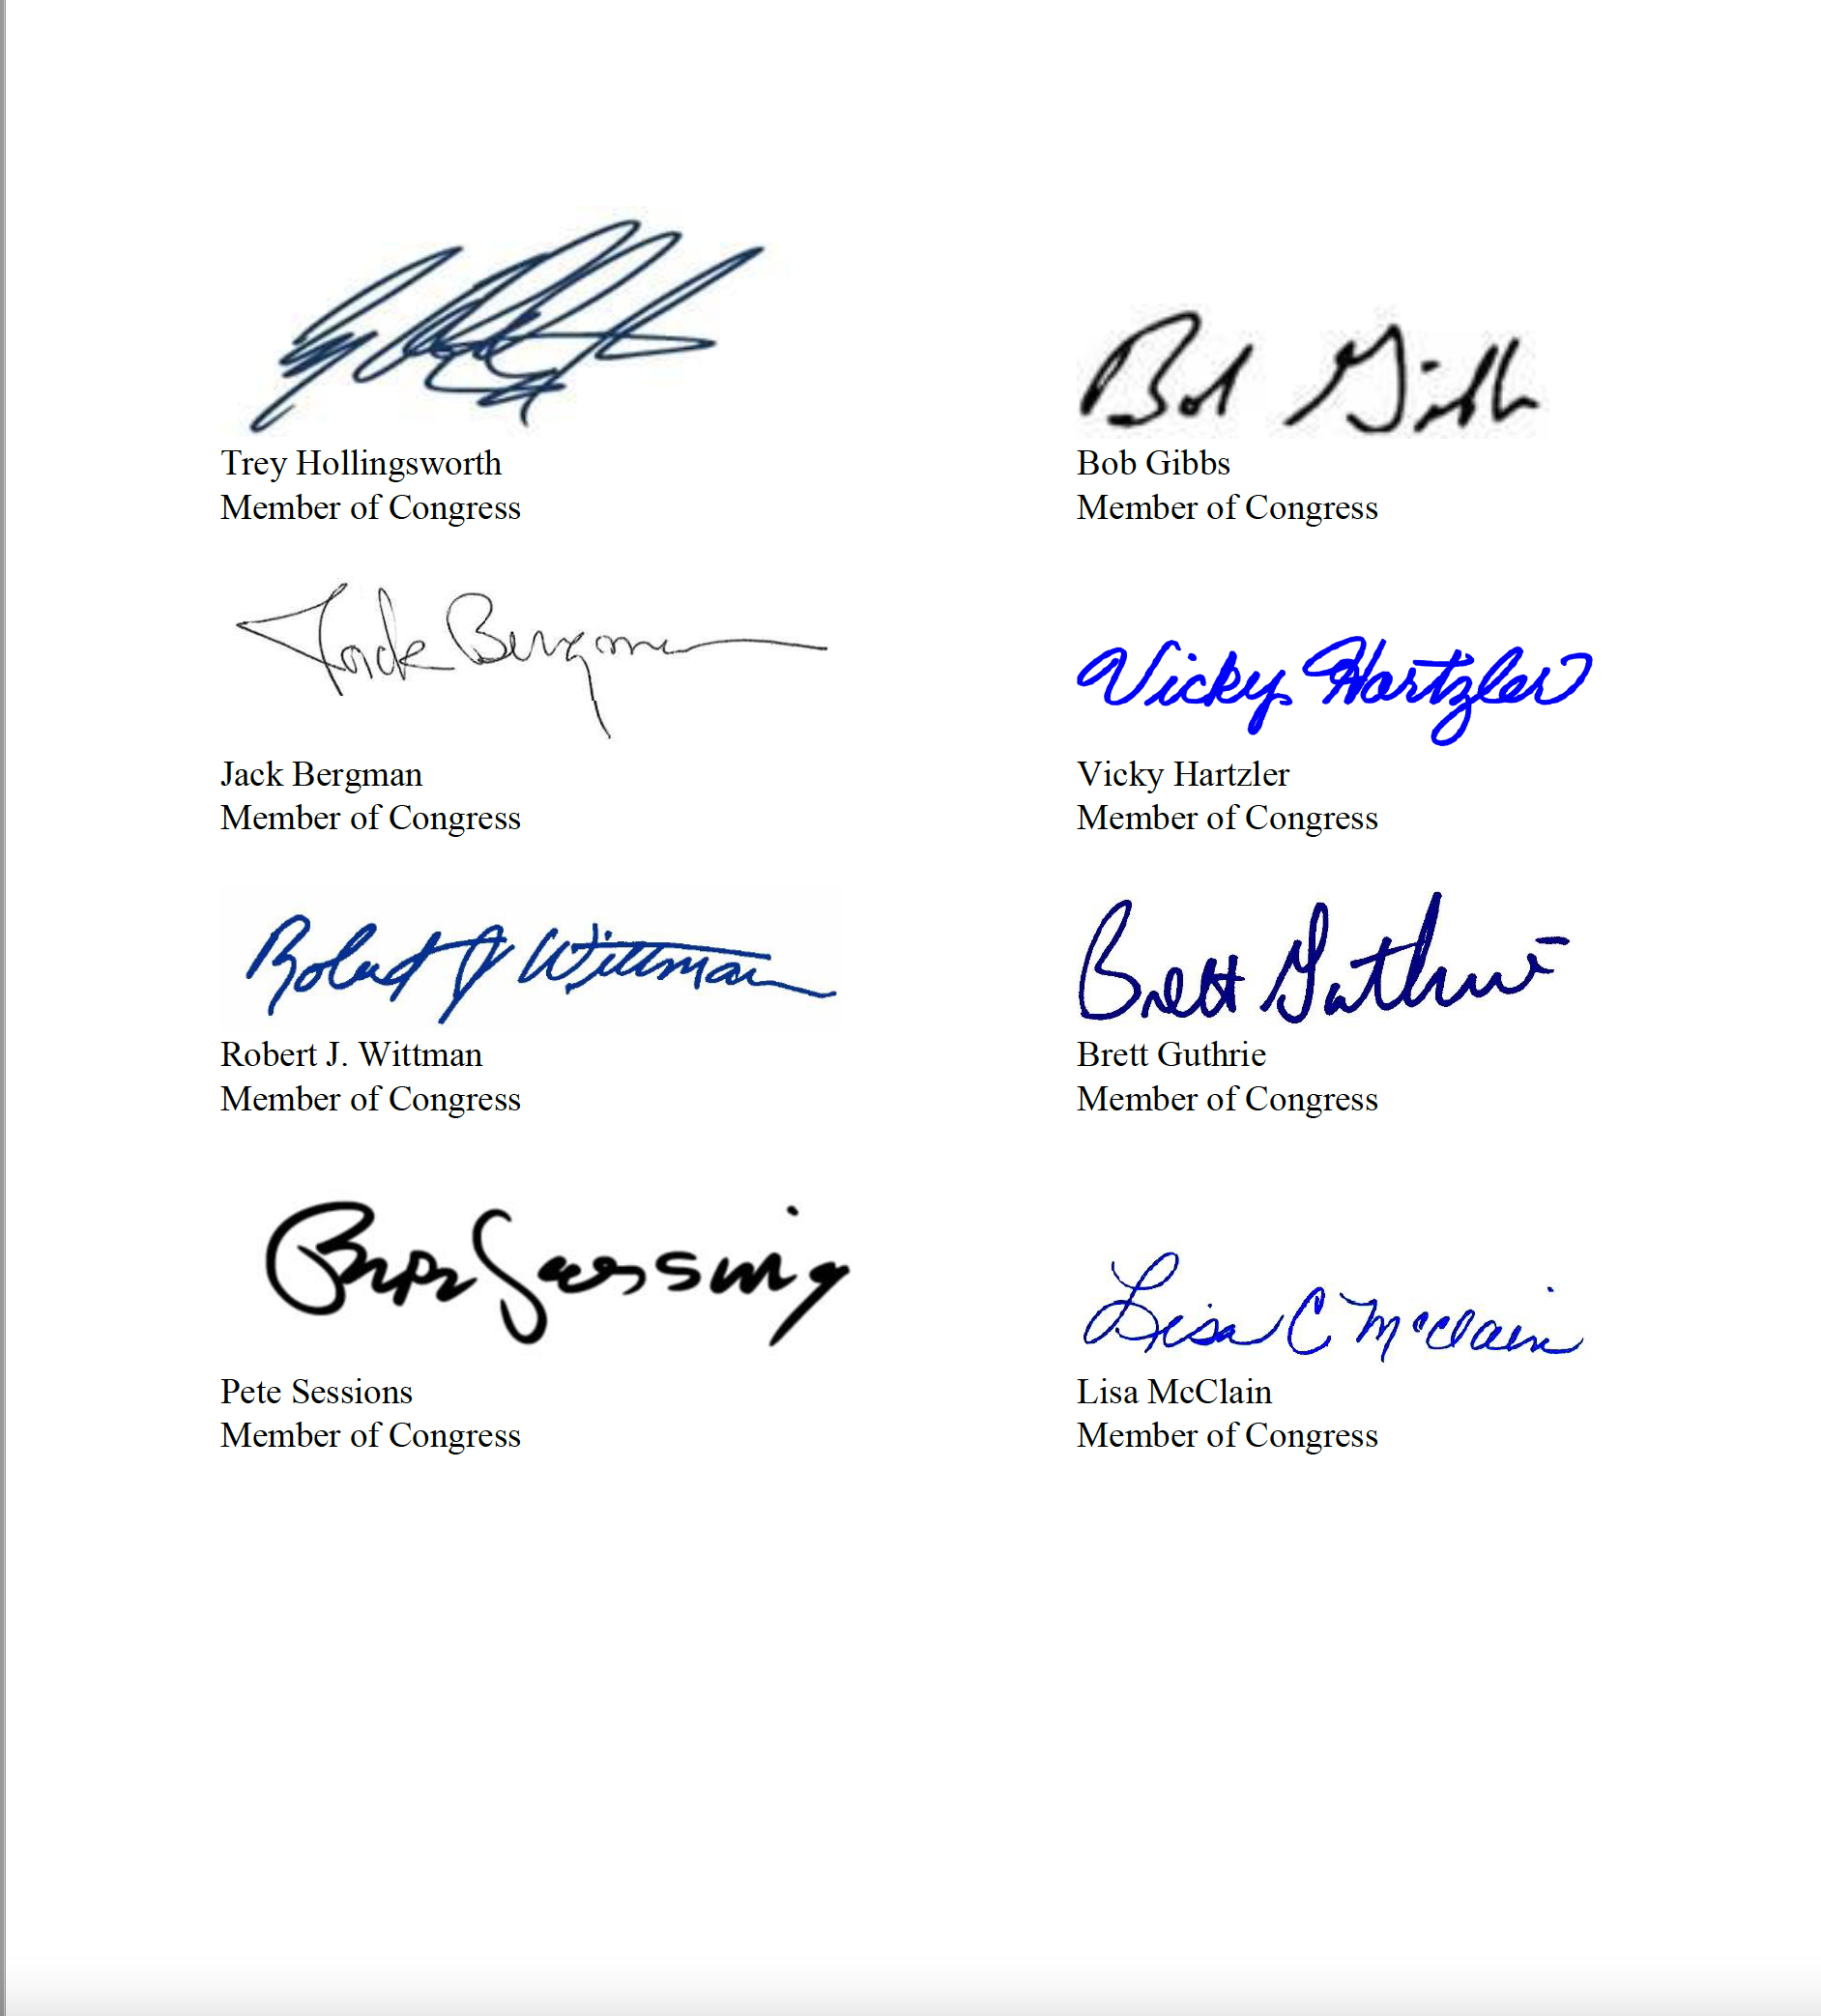 Trey Hollingsworth
Member of Congress
Bob Gibbs
Bob Gibbs
Member of Congress
Jack Bergman
Jack Bergman
Member of Congress
Vicky Hartzler
Vicky Hartzler
Member of Congress
Robert J Wittman
Robert J. Wittman
Member of Congress
Brett Guthrie
Brett Guthrie
Member of Congress
Pete Sessions
Pete Sessions
Member of Congress
Lisa C McClain
Lisa McClain
Member of Congress